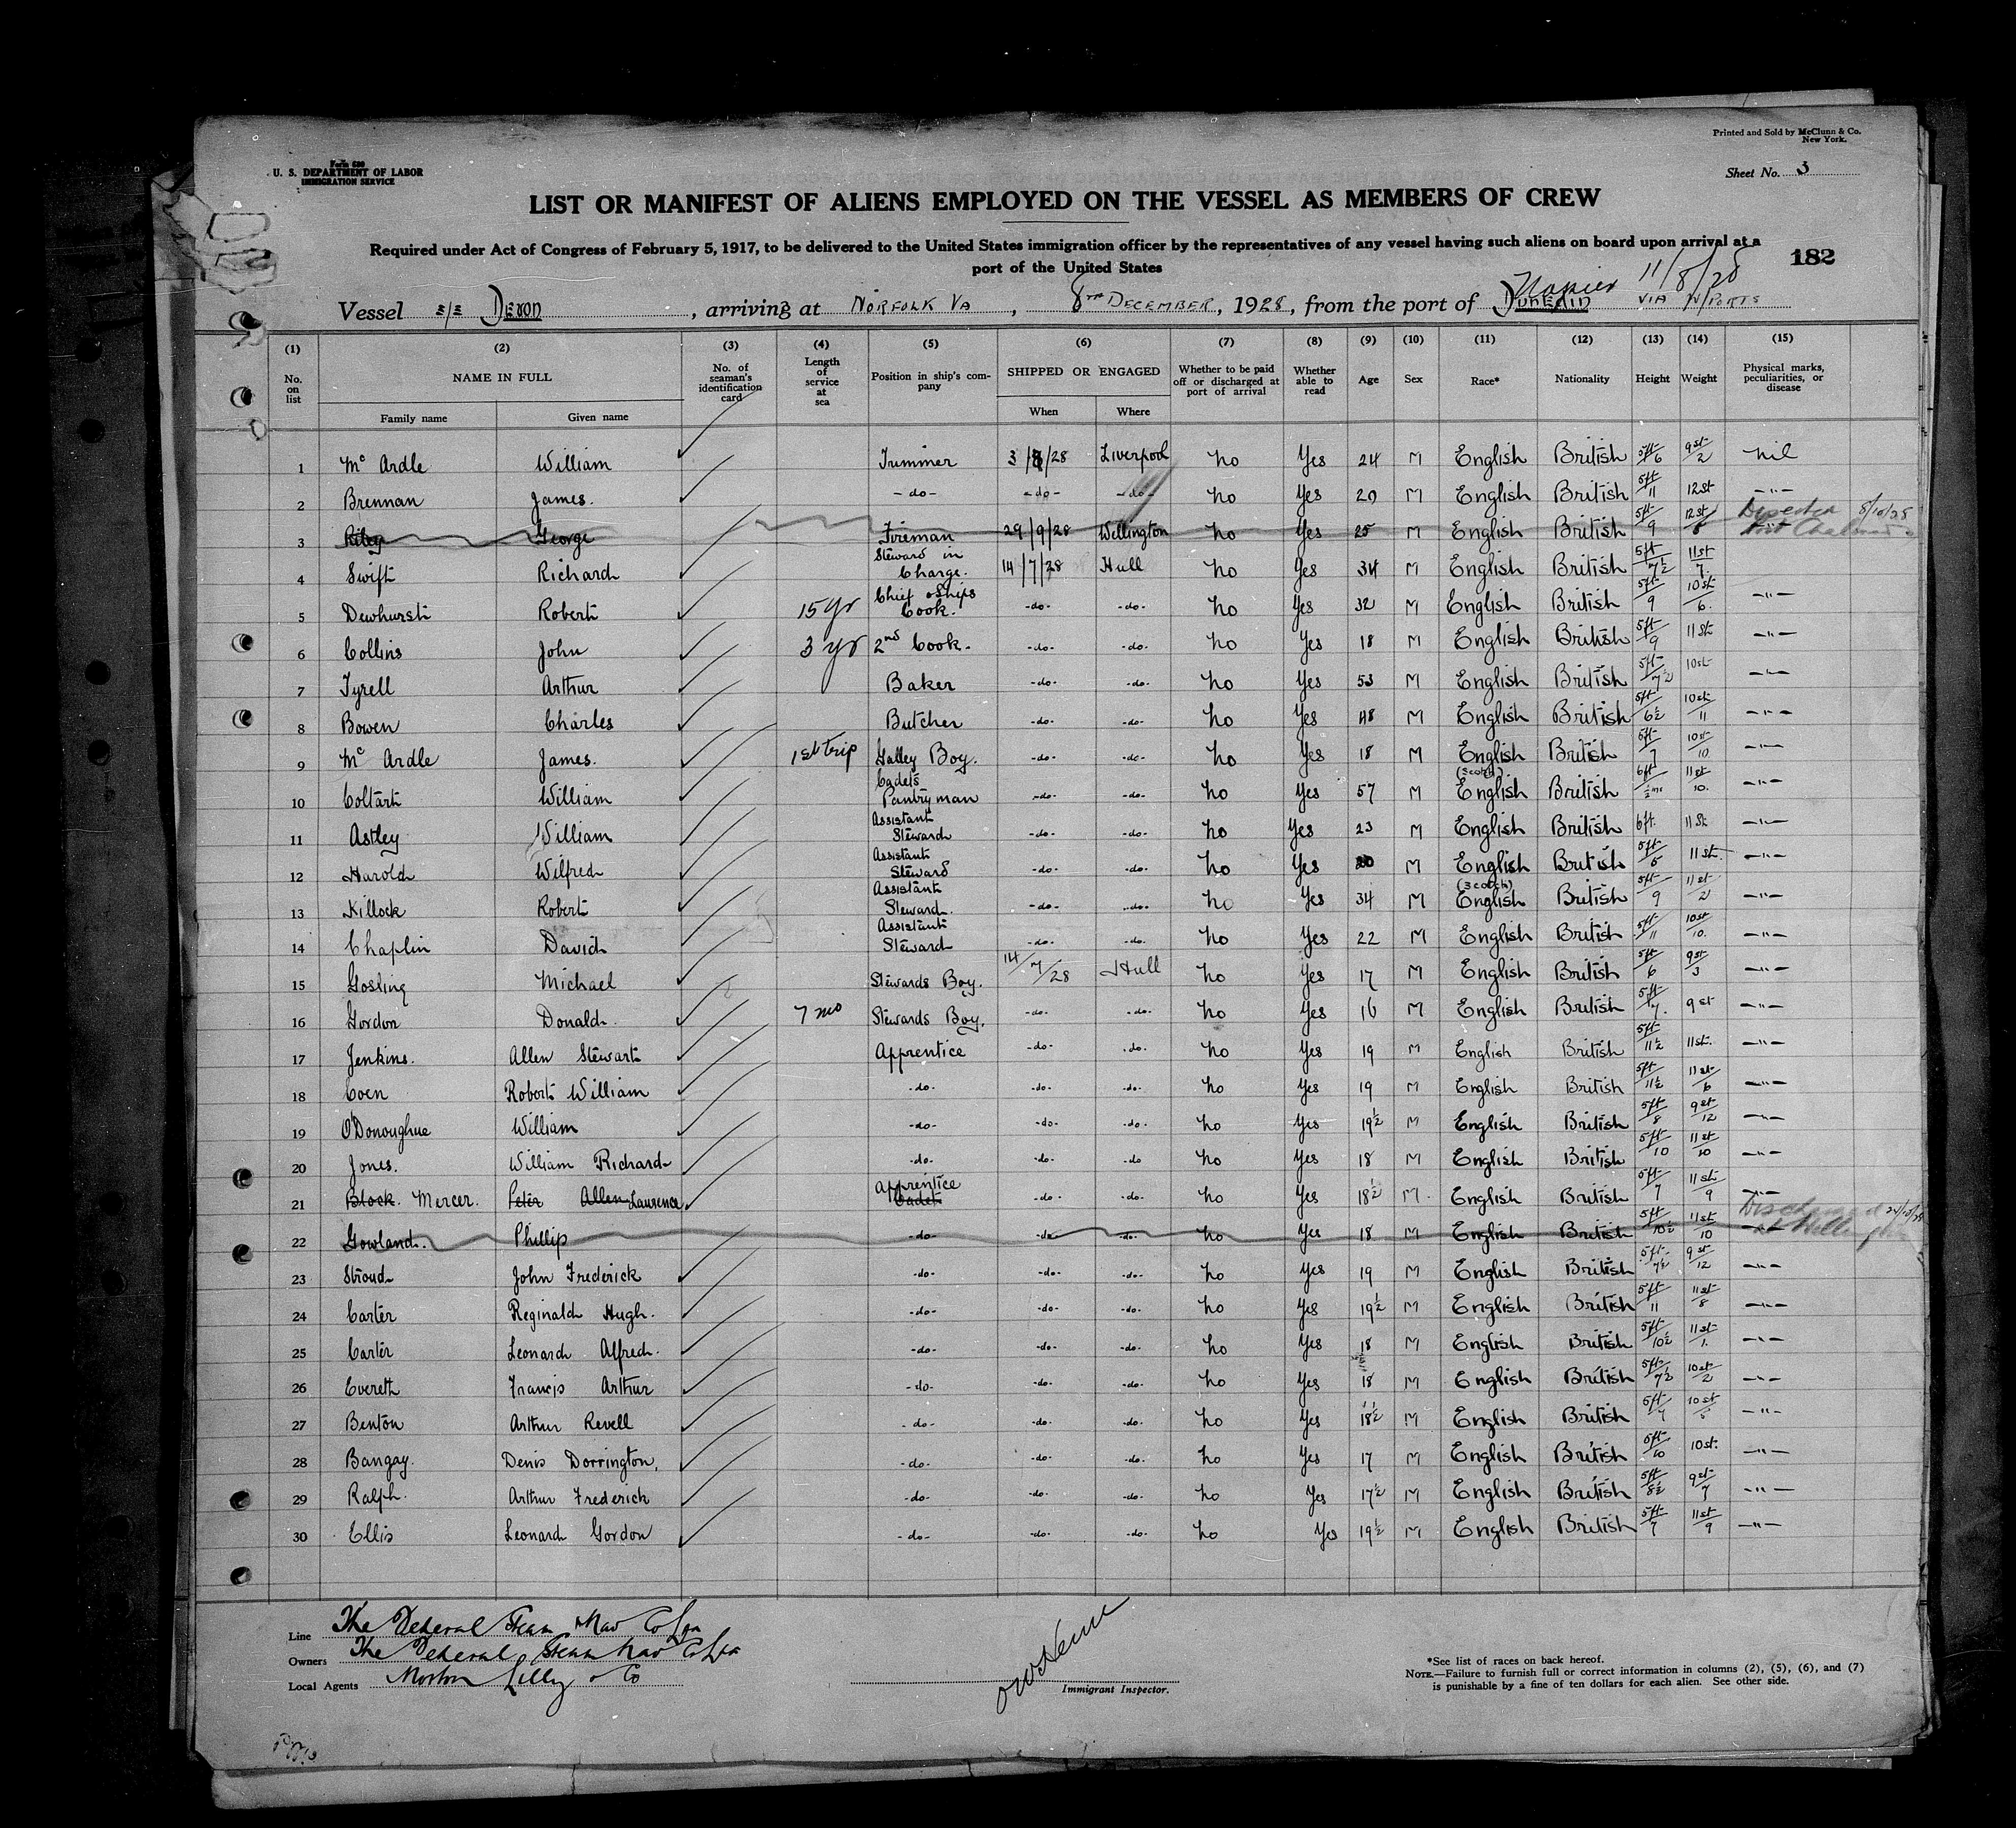 Printed and Sold by McClunn & Co.
New York.
Form 680
U. S. DEPARTMENT OF LABOR
IMMIGRATION SERVICE
Sheet No. 3
LIST OR MANIFEST OF ALIENS EMPLOYED ON THE VESSEL AS MEMBERS OF CREW
Required under Act of Congress of February 5, 1917, to be delivered to the United States immigration officer by the representatives of any vessel having such aliens on board upon arrival at a
port of the United States
182
Napier 11/8/28
Vessel s/s Devon, arriving at Norfolk Va, 8th December, 1928, from the port of Dunedin via N/Ports
(1) (2) (3) (4) (5) (6) (7) (8) (9) (10) (11) (12) (13) (14) (15)
No. on list NAME IN FULL No. of seaman's identification card Length of service at sea Position in ship's company SHIPPED OR ENGAGED Whether to be paid off or discharged at port of arrival Whether able to read Age Sex Race* Nationality Height Weight Physical marks, peculiarities, or disease
Family name Given name When Where
1 Mc Ardle William Trimmer 3/8/28 Liverpool No Yes 24 M English British 5ft 6 9st 2 nil
2 Brennan James. -do- -do- -do- No Yes 20 M English British 5ft 11 12st -"-
3 Riley George Fireman 29/9/28 Wellington No Yes 25 M English British 5ft 9 12st 8 -"- Deserted Port Chalmers 8/10/28
4 Swift Richard Steward in Charge. 14/7/28 Hull No Yes 34 M English British 5ft 7½ 11st 7.
5 Dewhurst Robert 15 yr Chief & Ships Cook. -do- -do- No Yes 32 M English British 5ft 9 10st 6. -"-
6 Collins John 3 yr 2nd Cook. -do- -do- No Yes 18 M English British 5ft 9 11st -"-
7 Tyrell Arthur Baker -do- -do- No Yes 53 M English British 5ft 7½ 10st -"-
8 Bowen Charles Butcher -do- -do- No Yes 48 M English British 5ft 6½ 10st 11 -"-
9 Mc Ardle James. 1st trip Galley Boy. -do- -do- No Yes 18 M English British 5ft 7 10st 10 -"-
10 Coltart William Cadets Pantryman -do- -do- No Yes 57 M (Scotch) English British 6ft ½ins 11st 10. -"-
11 Astley William Assistant Steward -do- -do- No Yes 23 M English British 6ft. 11st -"-
12 Harold Wilfred Assistant Steward -do- -do- No Yes 20 M English British 5ft 5 11st. -"-
13 Killock Robert Assistant Steward. -do- -do- No Yes 34 M (Scotch) English British 5ft 9 11st 2 -"-
14 Chaplin David Assistant Steward -do- -do- No Yes 22 M English British 5ft 11 10st 10. -"-
15 Gosling Michael Stewards Boy. 14/7/28 Hull No Yes 17 M English British 5ft 6 9st 3 -"-
16 Gordon Donald. 7 mo Stewards Boy. -do- -do- No Yes 16 M English British 5ft 7. 9st -"-
17 Jenkins. Allen Stewart Apprentice -do- -do- No Yes 19 M English British 5ft 11½ 11st. -"-
18 Coen Robert William -do- -do- -do- No Yes 19 M English British 5ft 11½ 11st 6 -"-
19 O'Donoughue William -do- -do- -do- No Yes 19½ M English British 5ft 8 9st 12 -"-
20 Jones. William Richard -do- -do- -do No Yes 18 M English British 5ft 10 11st 10 -"-
21 Block. Mercer. Peter Allen Laurence Apprentice Cadet -do- -do- No Yes 18½ M. English British 5ft 7 11st 9 -"-
22 Gowland. Phillip -do- -do- -do- No Yes 18 M English British 5ft 10½ 11st 10 -"- Discharged at Wellington 24/10/28
23 Stroud John Frederick -do- -do- -do- No Yes 19 M English British 5ft 7½ 9st 12 -"-
24 Carter Reginald Hugh. -do- -do- -do- No Yes 19½ M English British 5ft 11 11st 8 -"-
25 Carter Leonard Alfred. -do- -do- -do- No Yes 18 M English British 5ft 10½ 11st 1. -"-
26 Everett Francis Arthur -do- -do- -do- No Yes 18 M English British 5ft 7½ 10st 2 -"-
27 Benton Arthur Revell -do- -do- -do- No Yes 18½ M English British 5ft 7 10st 5 -"-
28 Bangay. Denis Dorrington. -do- -do- -do- No Yes 17 M English British 5ft 10 10st. -"-
29 Ralph. Arthur Frederick -do- -do- -do- No Yes 17½ M English British 5ft 8½ 9st 7 -"-
30 Ellis Leonard Gordon -do- -do- -do- No Yes 19½ M English British 5ft 7 11st 9 -"-
Line The Federal Steam Nav Co Ltd
Owners The Federal Steam Nav Co Ltd
Local Agents Norton Lilly & Co
Immigrant Inspector.
*See list of races on back hereof.
NOTE.—Failure to furnish full or correct information in columns (2), (5), (6), and (7)
is punishable by a fine of ten dollars for each alien. See other side.